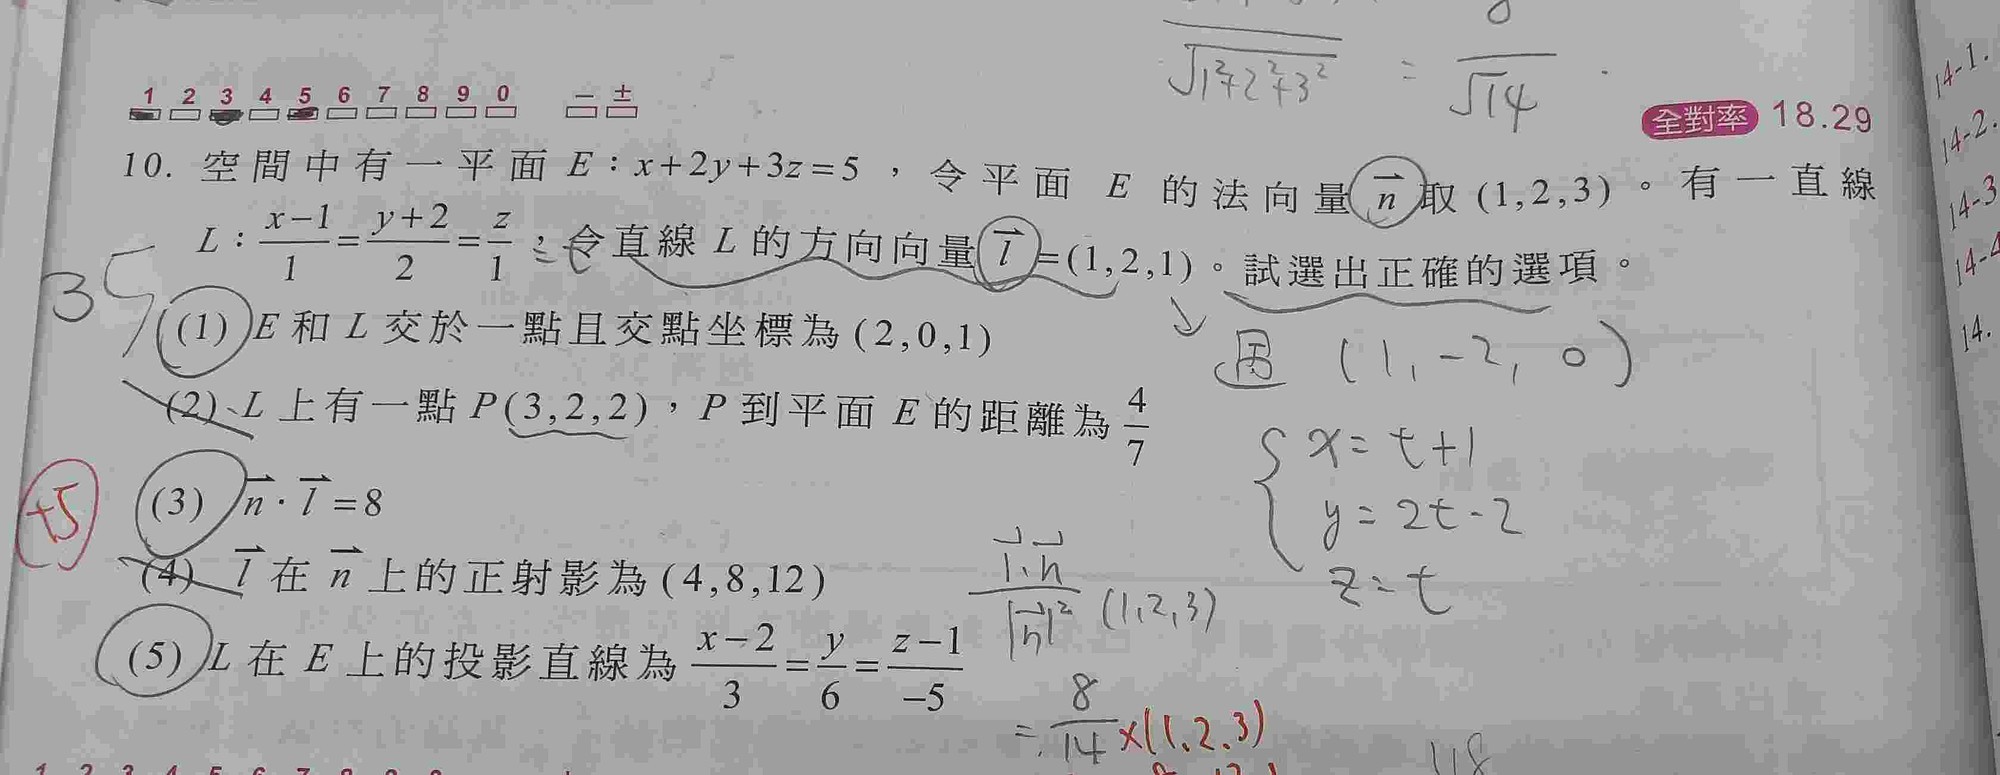 √1²+2²+3² = 8/√14
1 2 3 4 5 6 7 8 9 0 − ±
全對率 18.29
10. 空間中有一平面 E：x+2y+3z=5，令平面 E 的法向量 n⃗ 取 (1,2,3)。有一直線
L：(x−1)/1=(y+2)/2=z/1，令直線 L 的方向向量 l⃗=(1,2,1)。試選出正確的選項。
35
(1) E 和 L 交於一點且交點坐標為 (2,0,1)
過 (1,-2,0)
(2) L 上有一點 P(3,2,2)，P 到平面 E 的距離為 4/7
{ x=t+1
y=2t-2
z=t
+5
(3) n⃗·l⃗=8
(4) l⃗ 在 n⃗ 上的正射影為 (4,8,12)
l⃗·n⃗/|n⃗|² (1,2,3)
(5) L 在 E 上的投影直線為 (x−2)/3=y/6=(z−1)/−5
= 8/14 ×(1,2,3)
14-1.
14-2.
14-3
14-4
14.